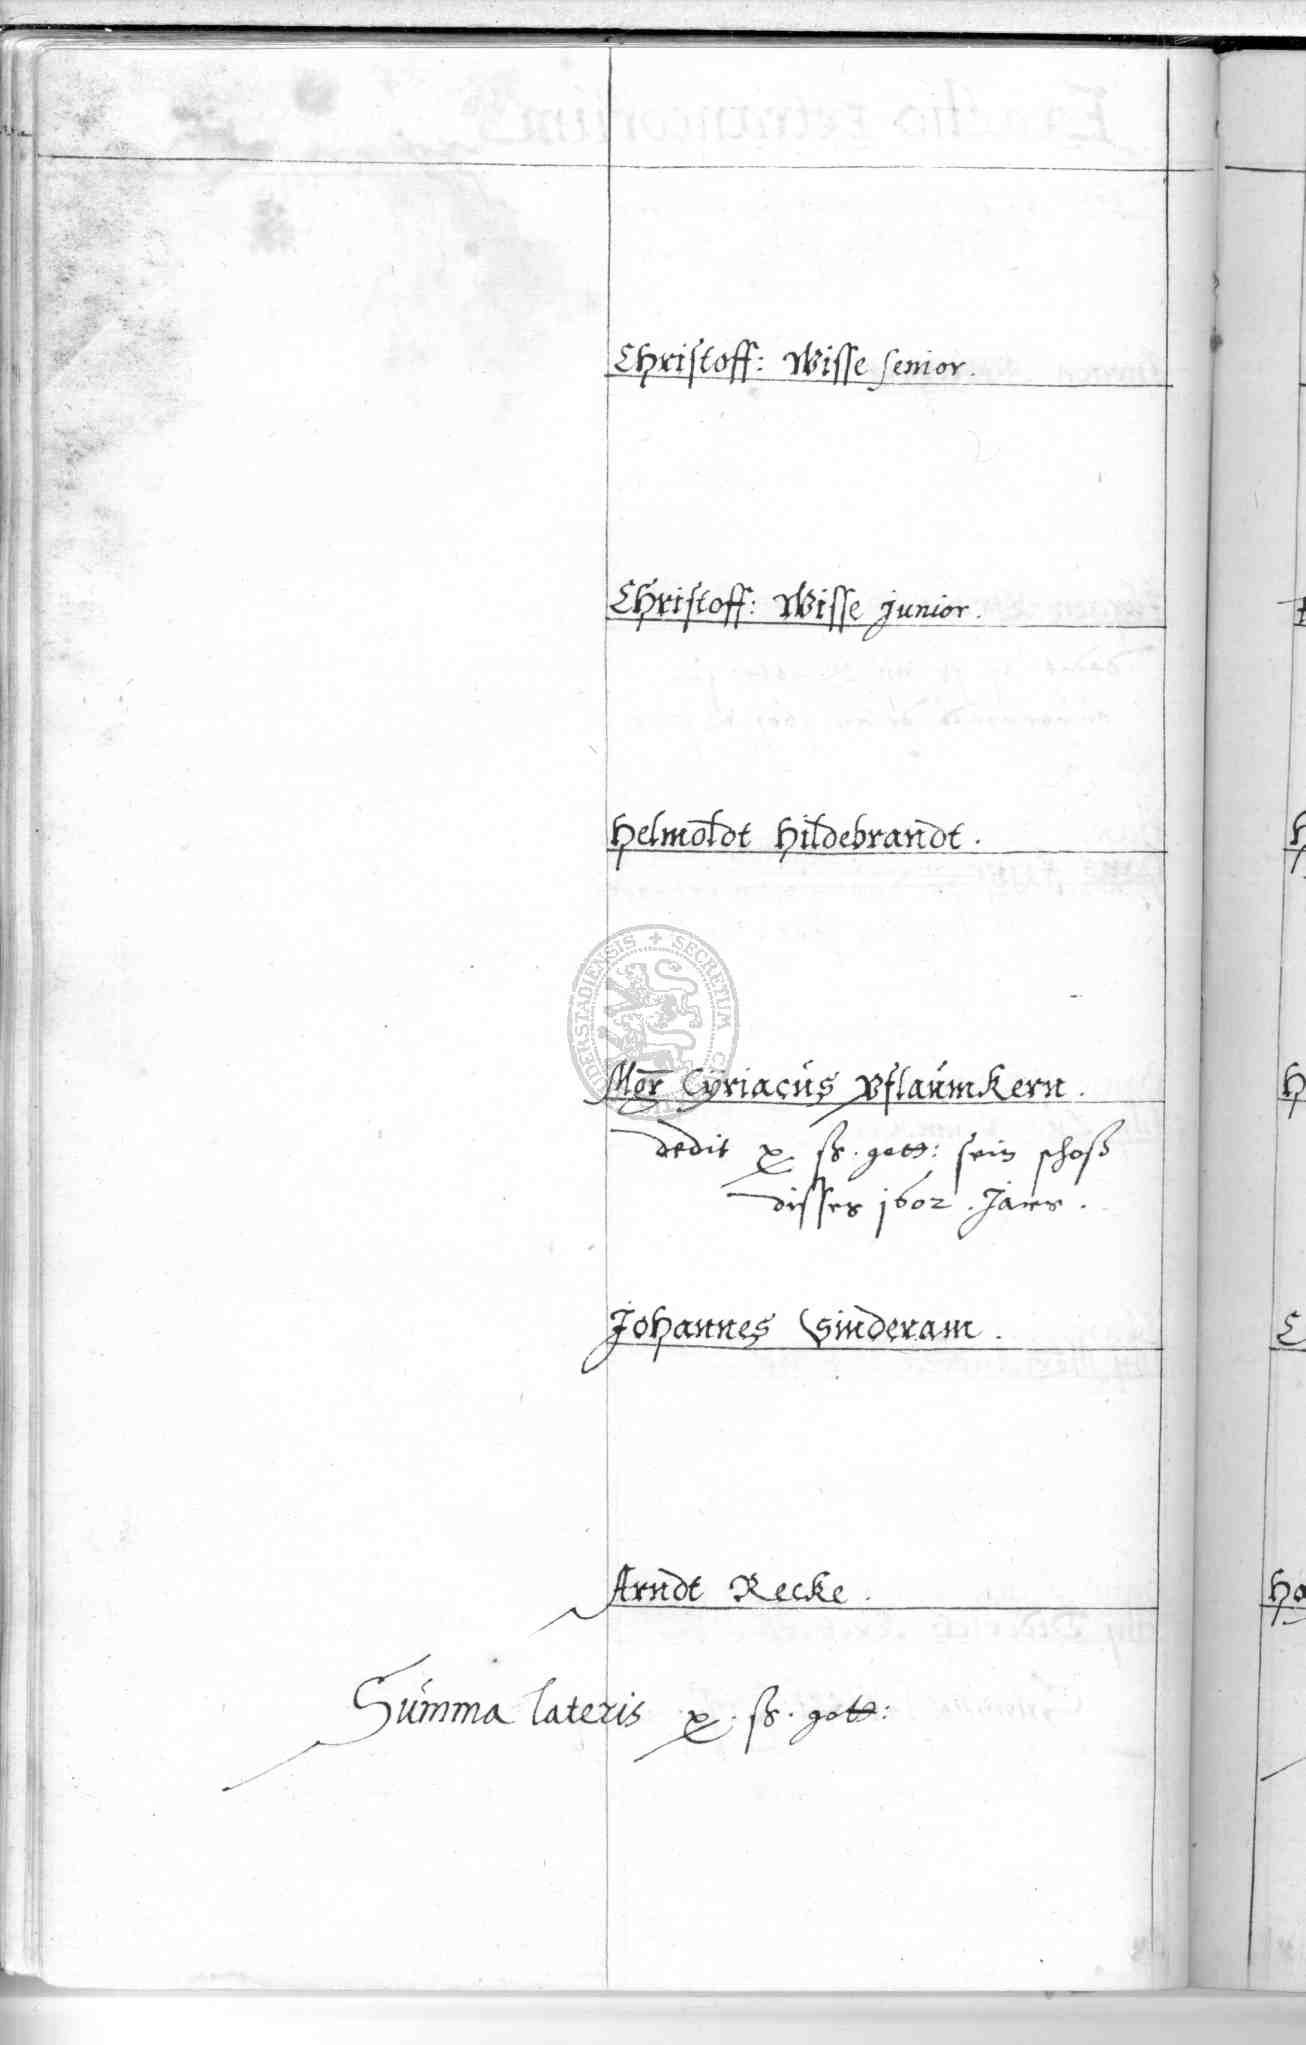 Christoff: Wisse senior.
Christoff: Wisse junior.
Helmoldt Hildebrandt.
Mgr Cyriacus Pflaumkern.
dedit x ß. gott: sein schoß
disses 1602. Jars.
Johannes Sinderam.
Arndt Recke.
Summa lateris x. ß. gott: